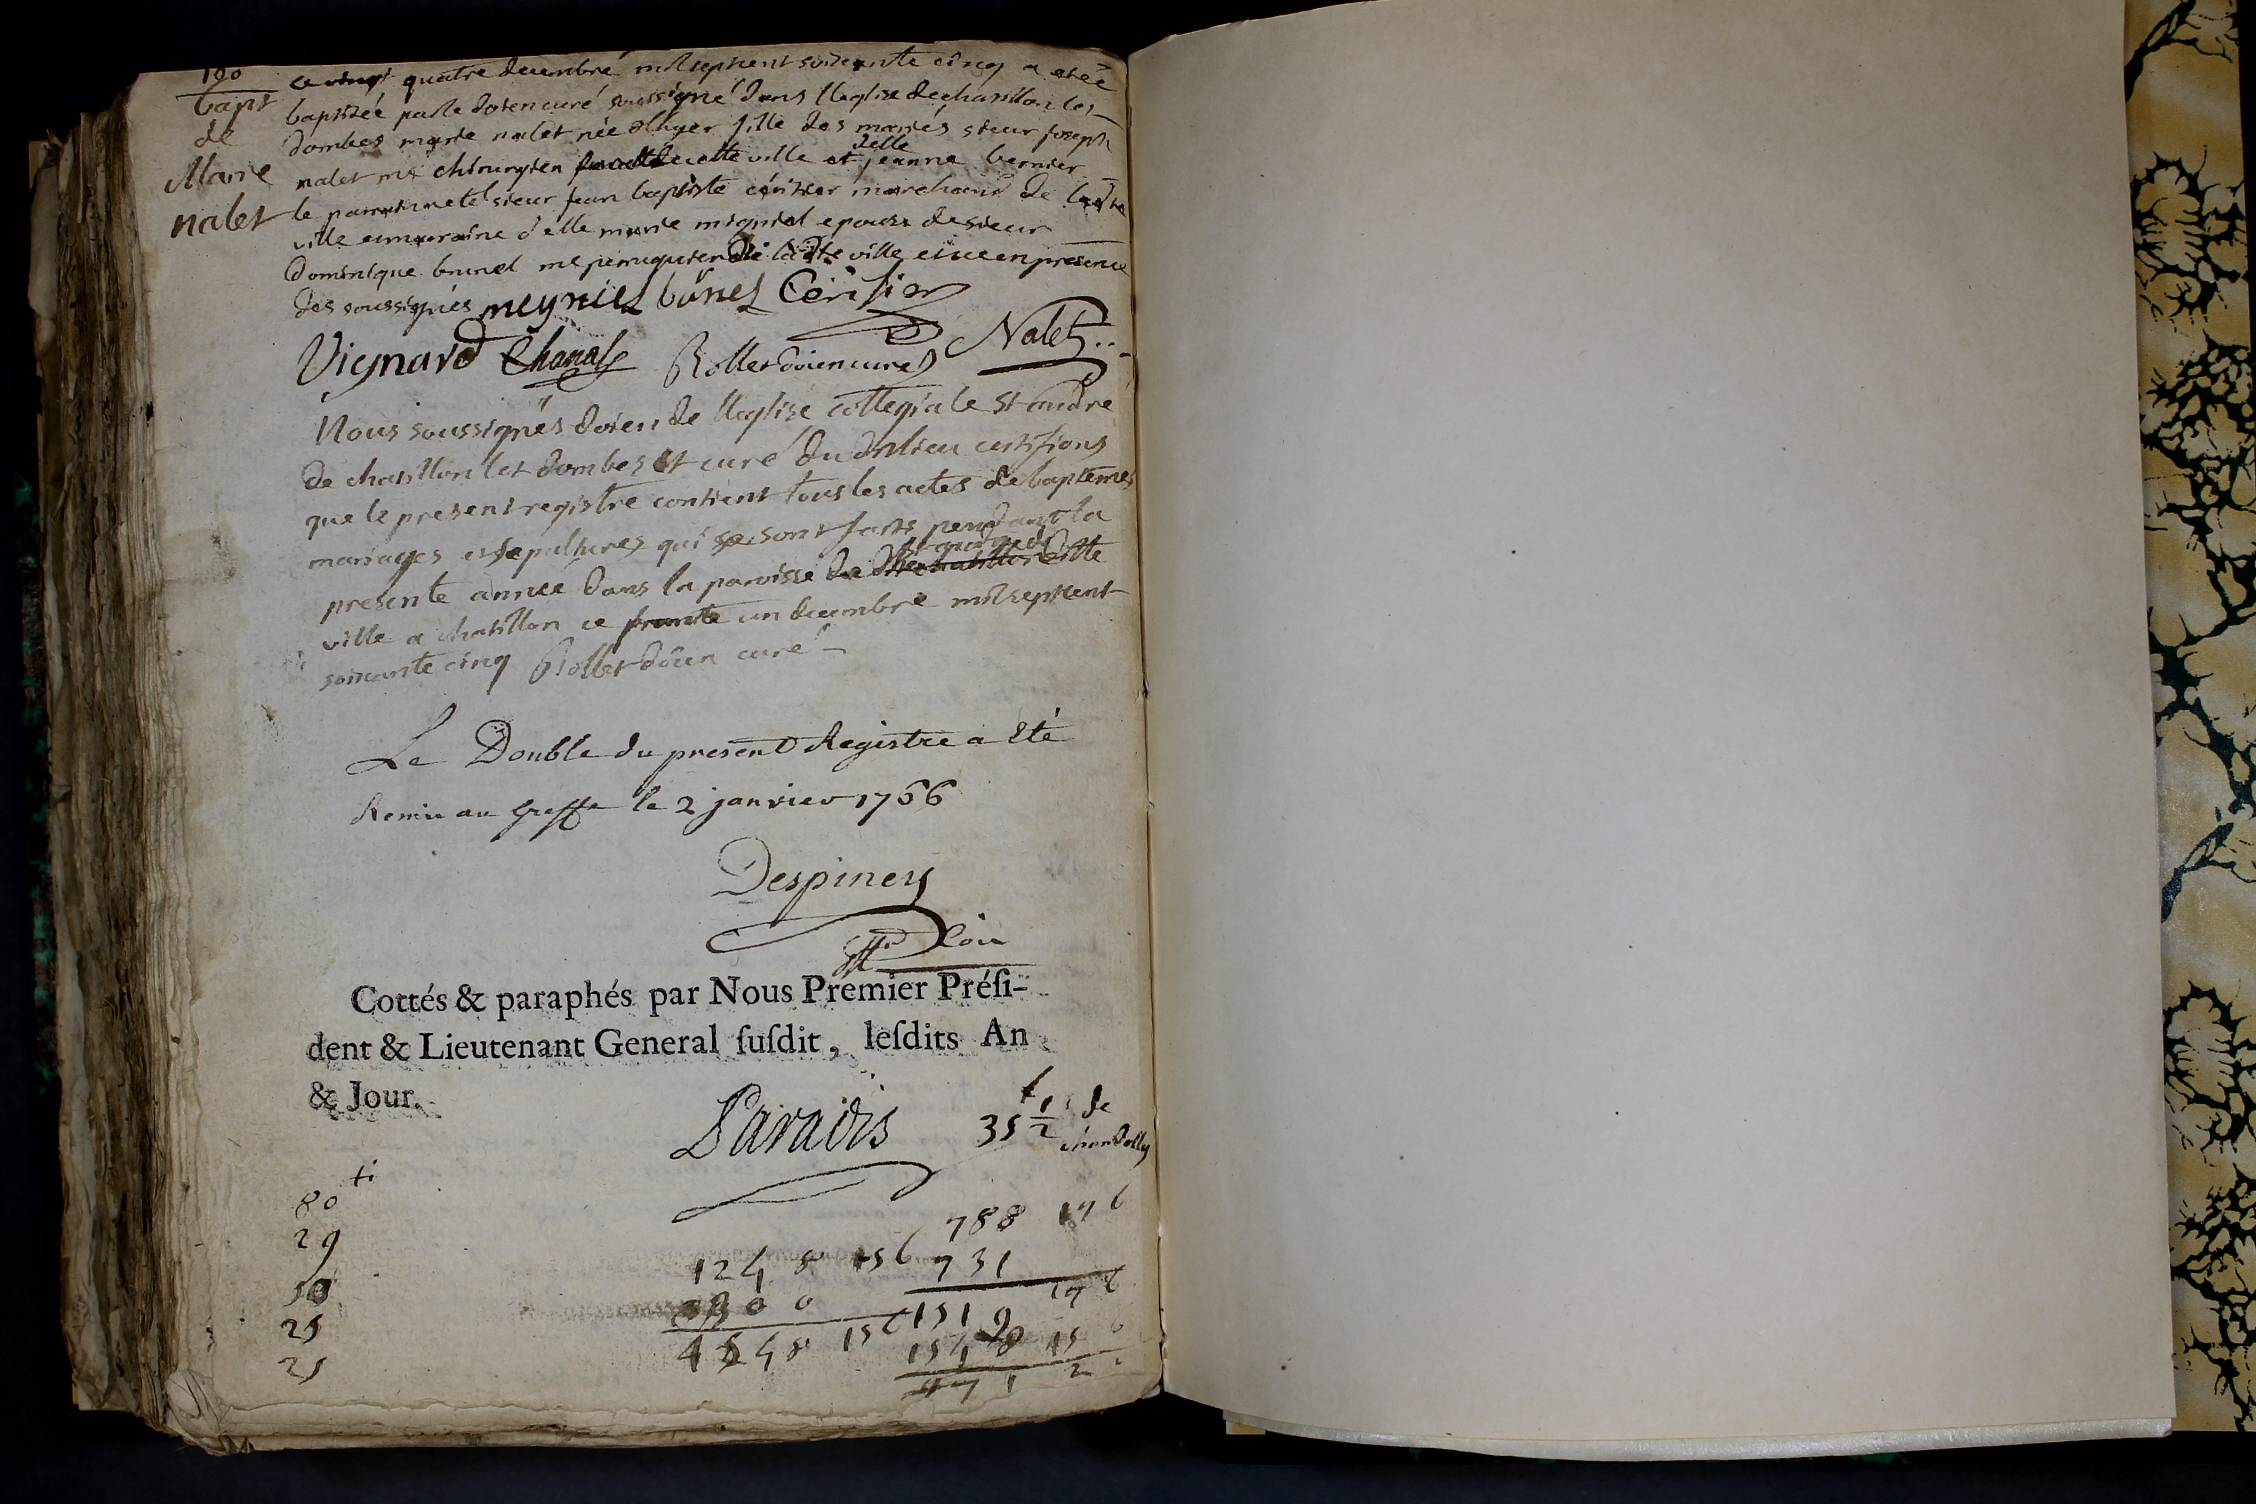 190
bapt
de
Marie
nalet
ce vingt quatre decembre mil sept cent soixante cinq a etée
baptisée par le doien curé soussigné dans l'leglise de chatillon les
dombes marie nalet née d'hyer fille des mariés sieur joseph
nalet me chirurgien de cette ville et delle jeanne bernier
le parrain a eté sieur jean baptiste cerisier marchand de ladte
ville et marraine d'elle marie migniel epouse de sieur
dominique brunel me perruquier de ladte ville et ce en presence
des soussignés meyniel bünel Cerisier
Vignard Chanal Rollet doien curé Nalet
Nous soussignés doien de l'leglise collegiale St andre
de chatillon les dombes et curé dudt lieu certifions
que le present registre contient tous les actes de baptemes
mariages et sepultures qui se sont faits pendant la
presente année dans la paroisse de ditte
ville a chatillon ce trente un decembre mil sept cent
soixante cinq Rollet doien curé
Le Double du present Registre a Eté
Remis au Greffe le 2 janvier 1766
Despiney
Cottés & paraphés par Nous Premier Préſi-
dent & Lieutenant General ſuſdit, leſdits An
& Jour.
Paradis
35 1/2 de
80
29
25
25
788 17 6
1248 15 6 731
1519 17 6
4548 15 6
1548 15